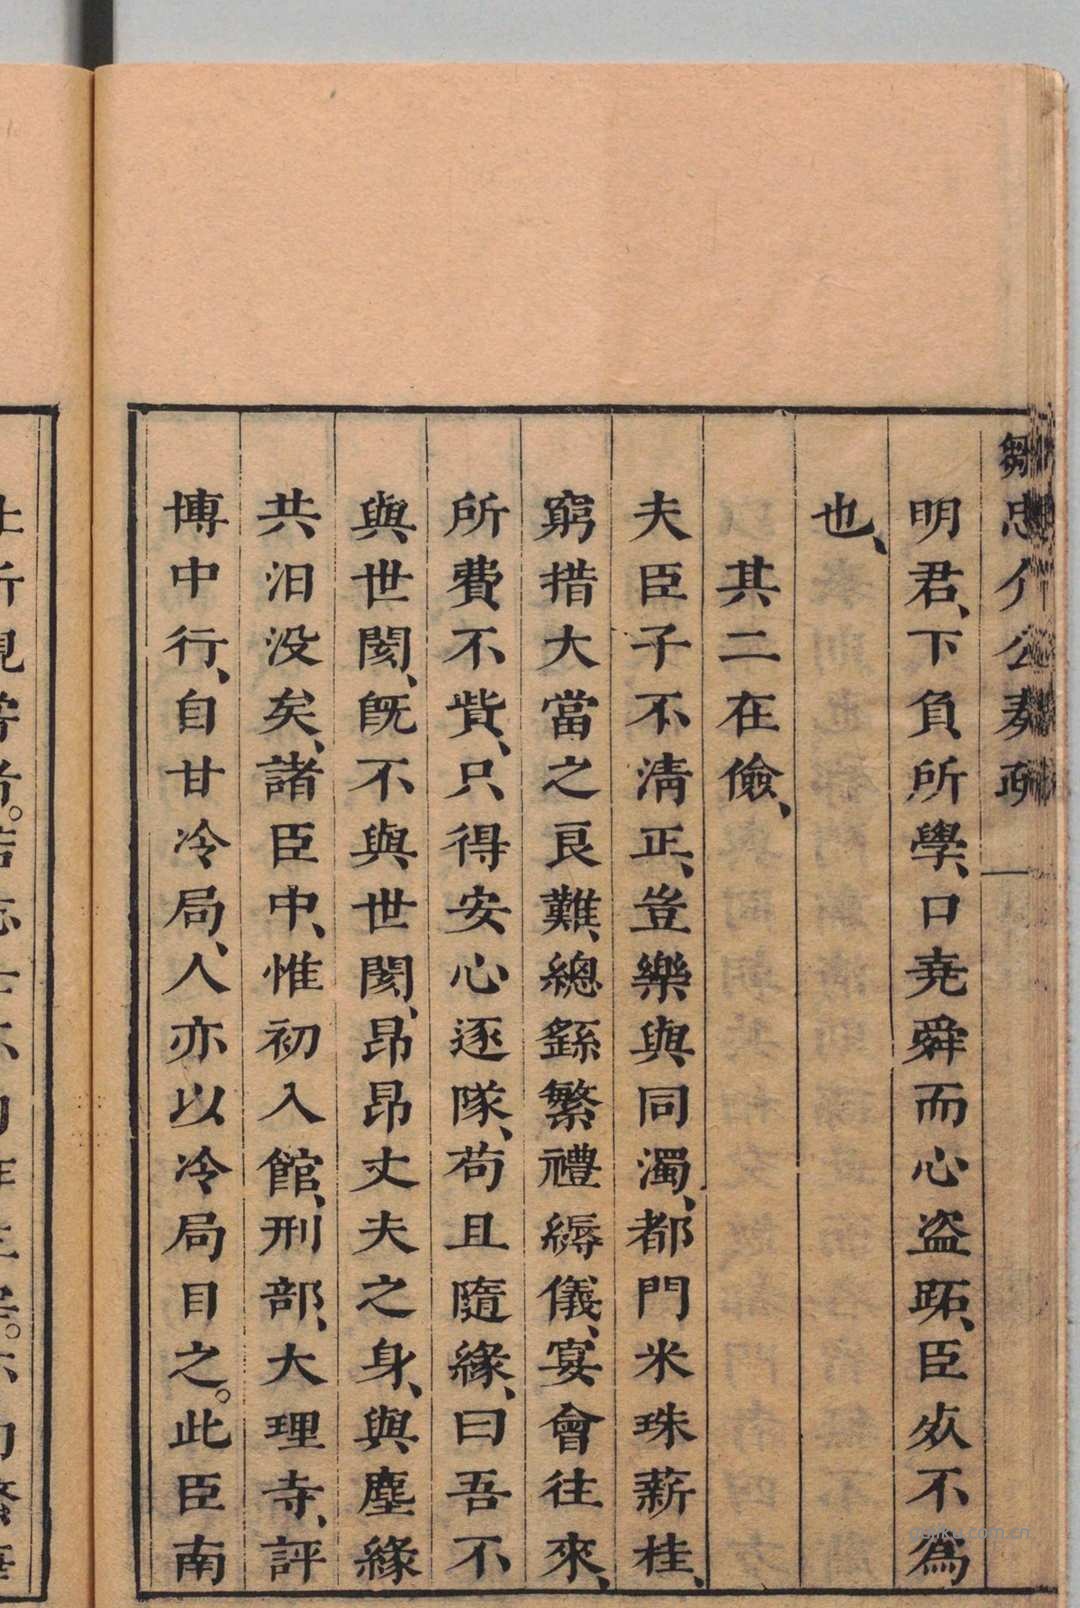 鄒忠介公奏疏
一
明君、下負所學、口堯舜而心盗跖、臣必不爲
也、
其二在儉、
夫臣子不清正、豈樂與同濁、都門米珠薪桂、
窮措大當之良難、總繇繁禮縟儀、宴會往來、
所費不貲、只得安心逐隊、苟且隨緣、曰吾不
與世闊、既不與世闊、昂昂丈夫之身、與塵緣
共汨没矣、諸臣中、惟初入館、刑部、大理寺、評
博中行、自甘冷局、人亦以冷局目之。此臣南